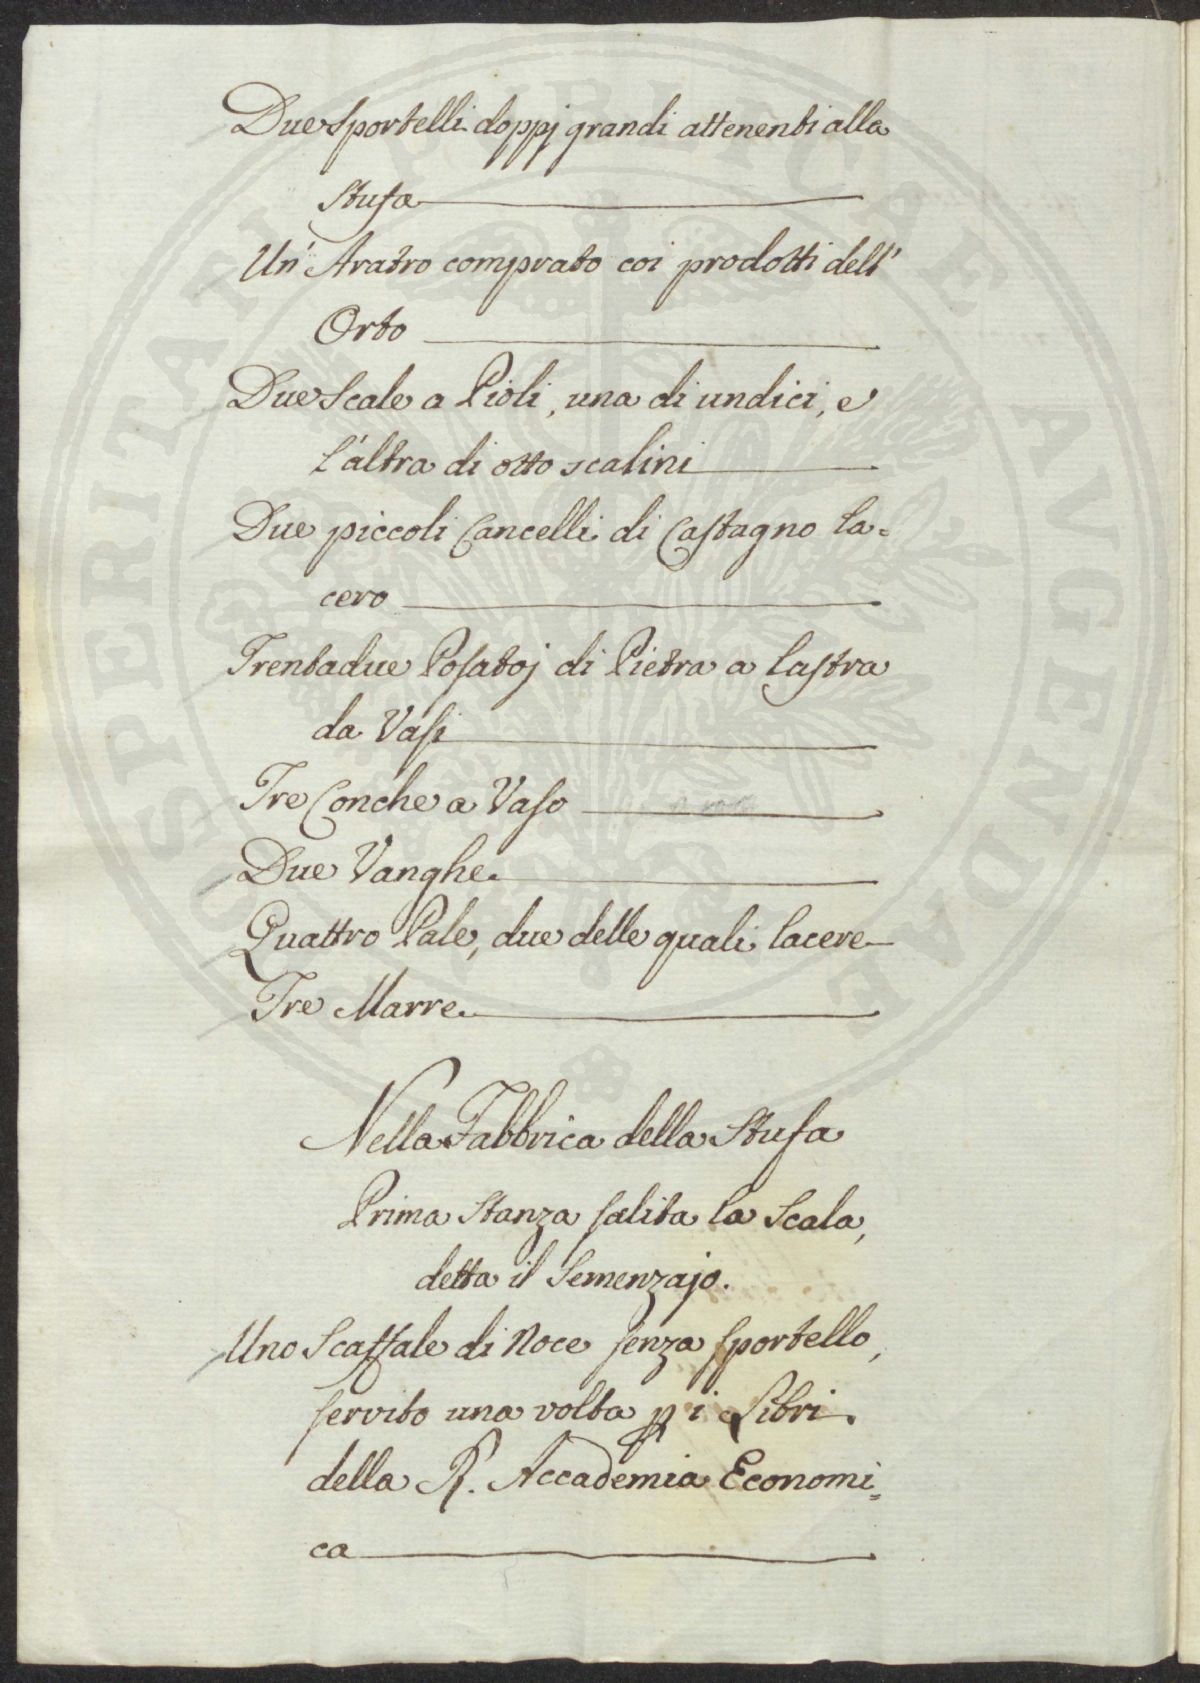 Due Sportelli doppj grandi attenenti alla
Stufa
Un' Aratro comprato coi prodotti dell'
Orto
Due Scale a Pioli, una di undici, e
l'altra di otto scalini
Due piccoli Cancelli di Castagno la=
cero
Trentadue Posatoj di Pietra a lastra
da Vasi
Tre Conche a Vaso
Due Vanghe
Quattro Pale, due delle quali lacere
Tre Marre
Nella Fabbrica della Stufa
Prima Stanza salita la Scala,
detta il Semenzajo.
Uno Scaffale di Noce senza sportello,
servito una volta p i Libri
della R. Accademia Economi=
ca
PROSPERITATI PUBLICAE AUGENDAE